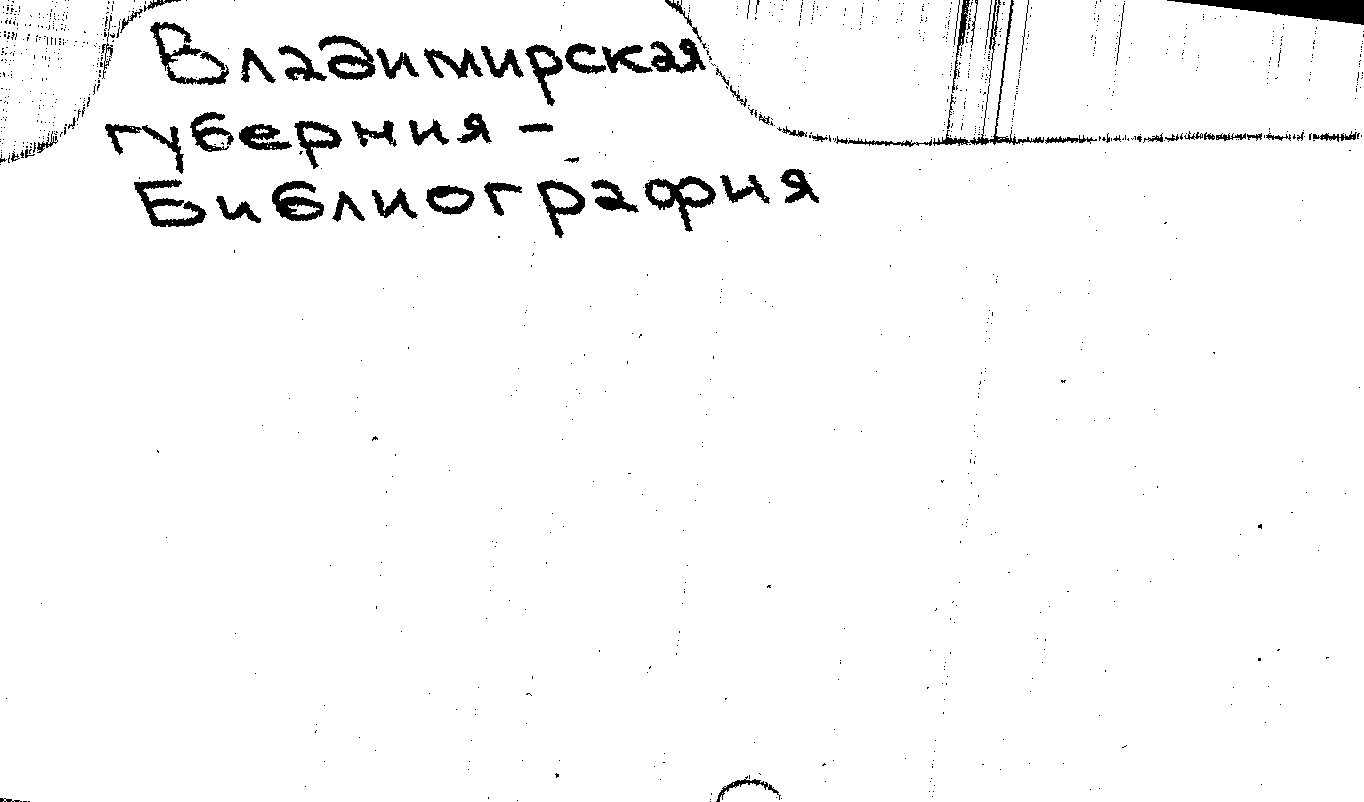 Владимирская
губерния -
Библиография